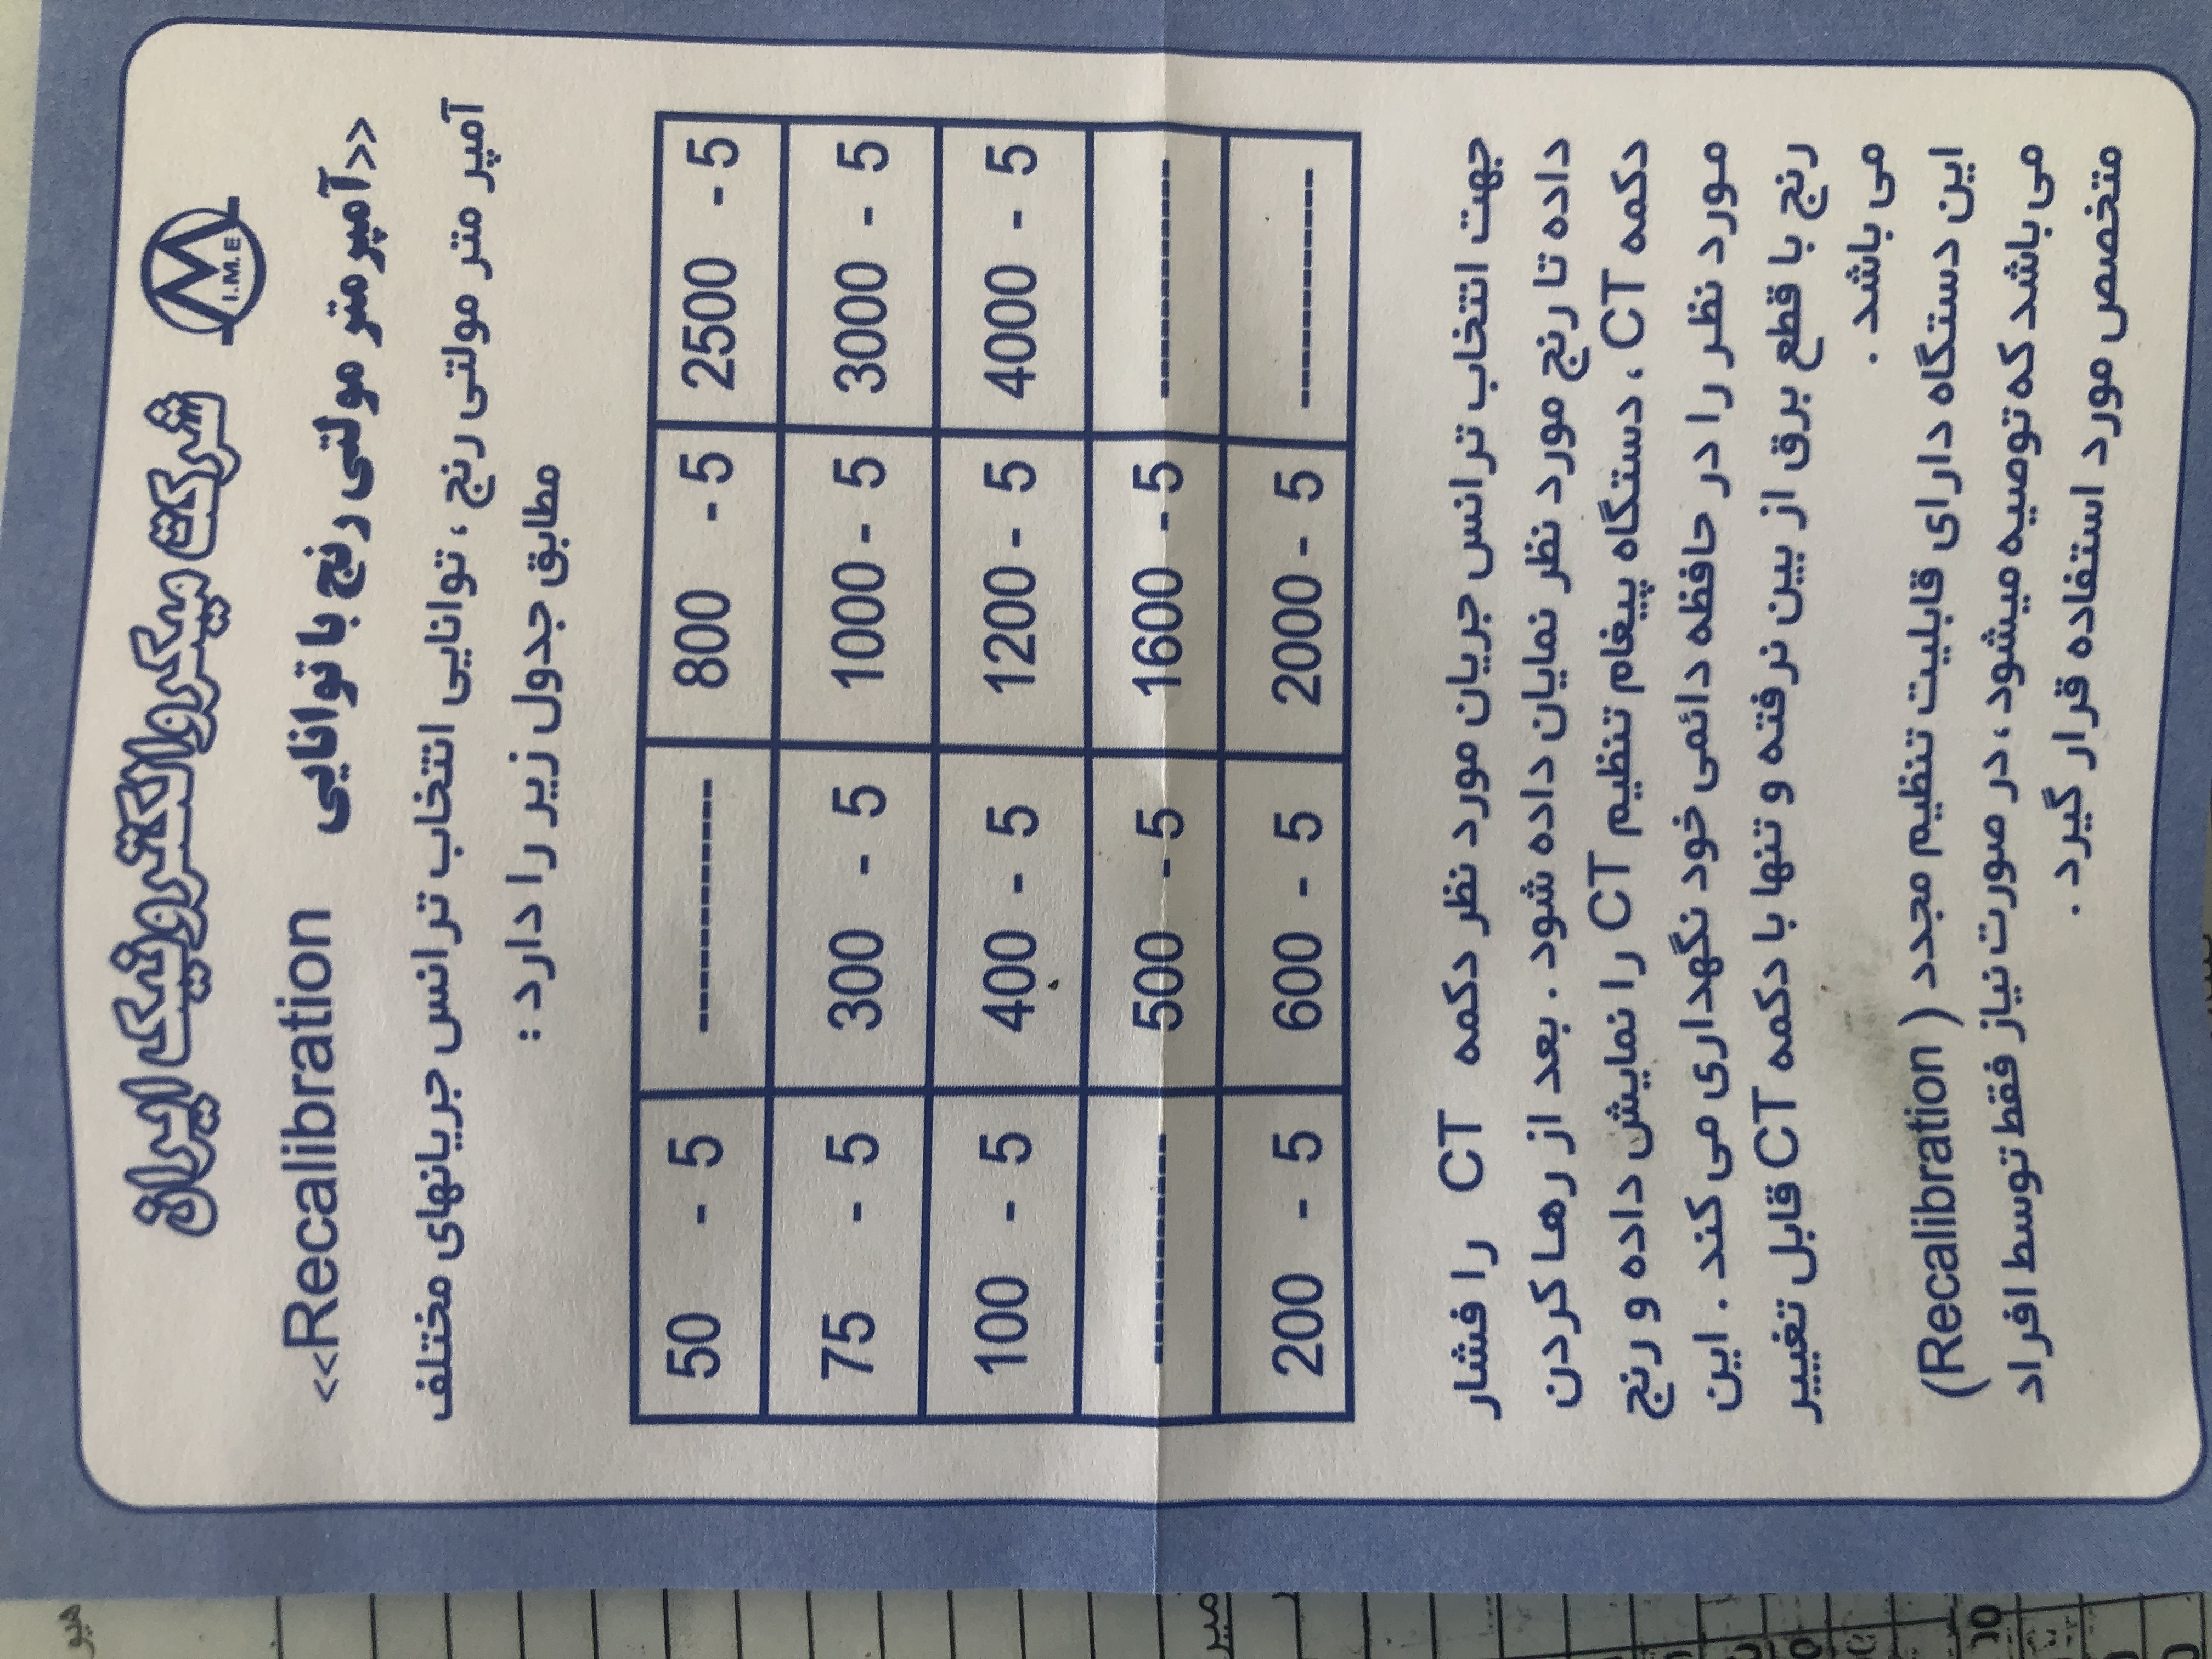 شرکت میکرو الکتریک پیک ایران
I.M.E
<<آمپر متر مولتی رنج با توانایی Recalibration>>
آمپر متر مولتی رنج ، توانایی انتخاب ترانس جریانهای مختلف
مطابق جدول زیر را دارد :
50 - 5 ------------ 800 - 5 2500 - 5
75 - 5 300 - 5 1000 - 5 3000 - 5
100 - 5 400 - 5 1200 - 5 4000 - 5
----------- 500 - 5 1600 - 5 -----------
200 - 5 600 - 5 2000 - 5 -----------
جهت انتخاب ترانس جریان مورد نظر دکمه CT را فشار
داده تا رنج مورد نظر نمایان داده شود . بعد از رها کردن
دکمه CT ، دستگاه پیغام تنظیم CT را نمایش داده و رنج
مورد نظر را در حافظه دائمی خود نگهداری می کند . این
رنج با قطع برق از بین نرفته و تنها با دکمه CT قابل تغییر
می باشد .
این دستگاه دارای قابلیت تنظیم مجدد ( Recalibration)
می باشد که توصیه میشود ، در صورت نیاز فقط توسط افراد
متخصص مورد استفاده قرار گیرد .